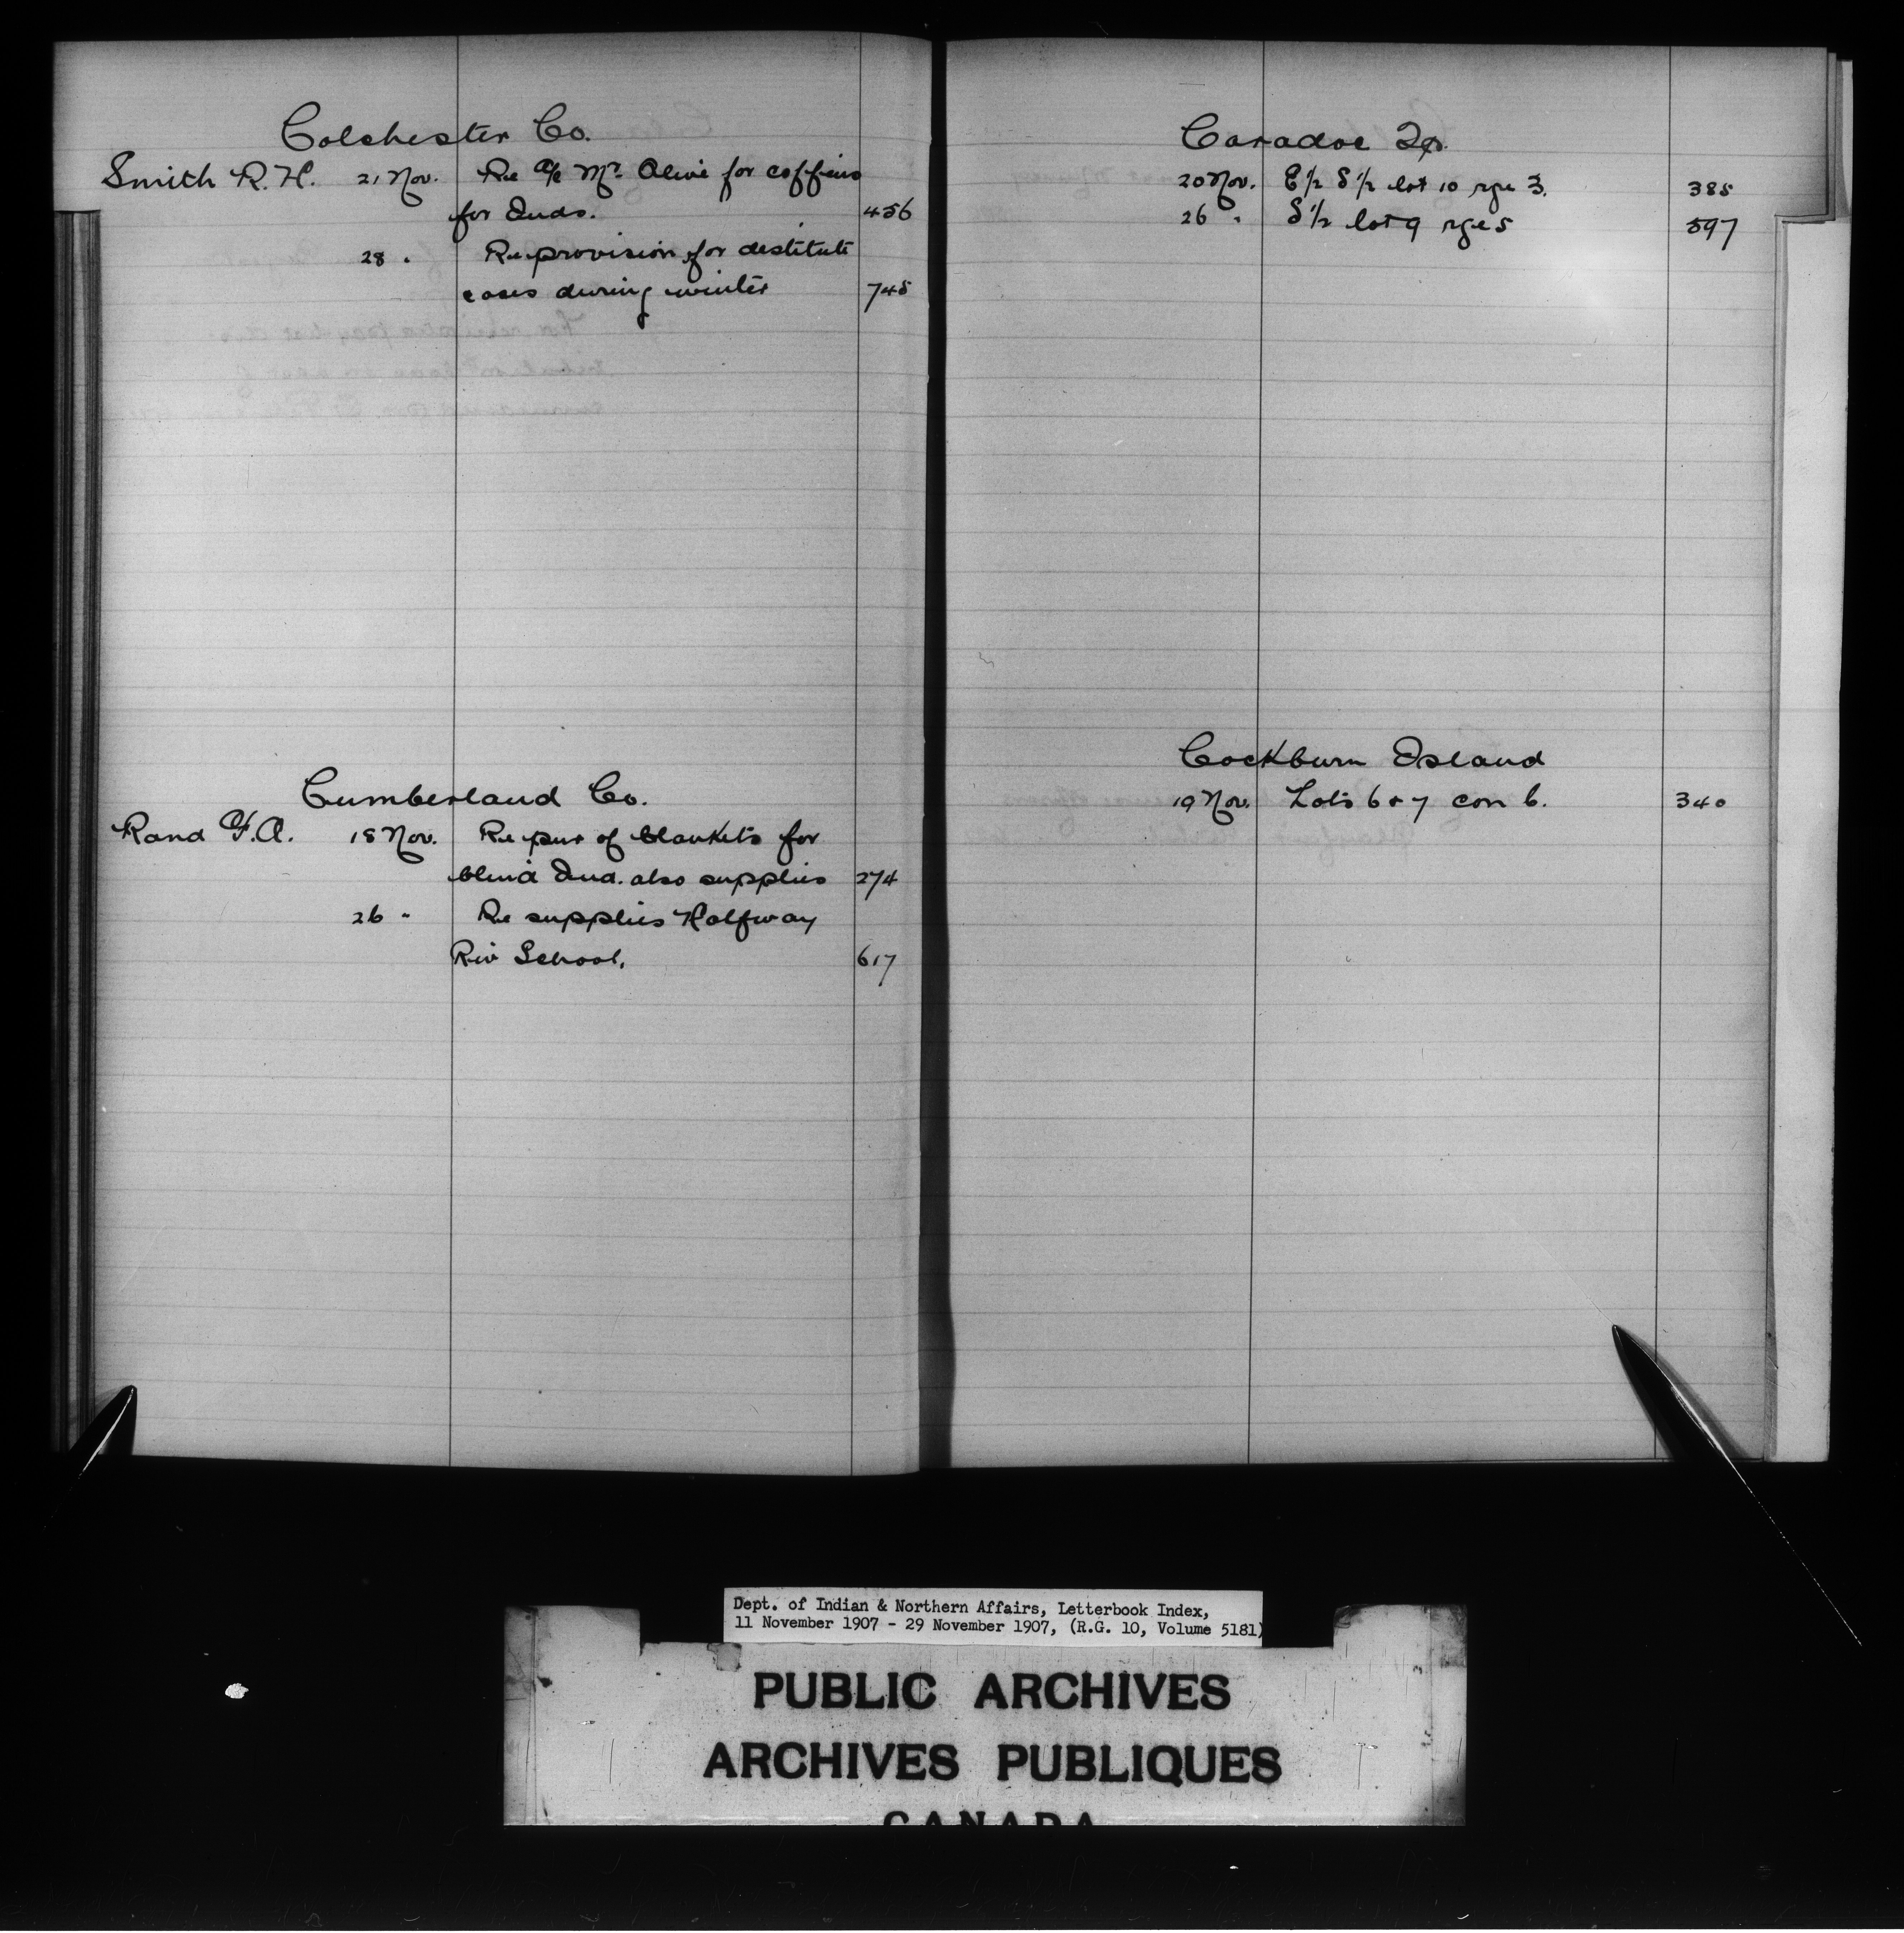 Colchester Co.
Smith R. H. 21 Nov. Re a/c Mr. Olive for coffins
for Inds. 456
28 " Re provision for destitute
cases during winter 745
Cumberland Co.
Rand F. A. 18 Nov. Re pur of blankets for
blind Ind. also supplies 274
26 " Re supplies Halfway
Riv School. 617
Caradoc Tp.
20 Nov. E 1/2 S 1/2 lot 10 rge 3. 385
26 " S 1/2 lot 9 rge 5 597
Cockburn Island
19 Nov. Lots 6 & 7 con 6. 340
Dept. of Indian & Northern Affairs, Letterbook Index,
11 November 1907 - 29 November 1907, (R.G. 10, Volume 5181)
PUBLIC ARCHIVES
ARCHIVES PUBLIQUES
CANADA